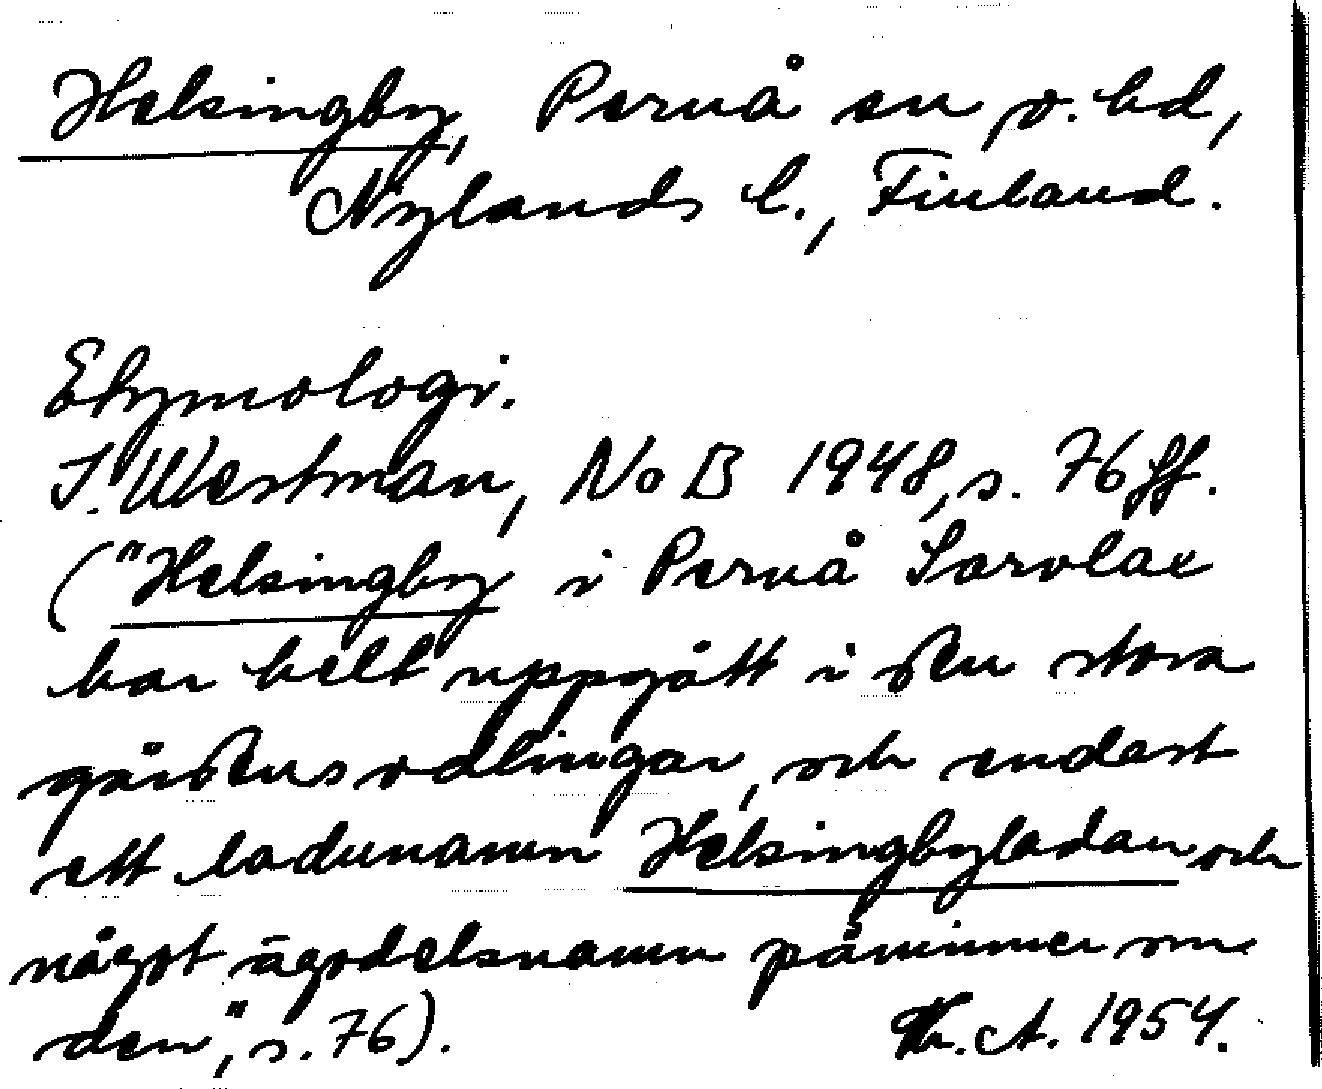 Helsingby, Pernå sn o. hd,
Nylands l., Finland.
Etymologi.
I. Westman, NoB 1948, s. 76 ff.
("Helsingby i Pernå Sarvlax
har helt uppgått i den stora
gårdens odlingar, och endast
ett ladunamn Helsingbyladan och
något ägodelsnamn påminner om
den", s. 76).
Th. A. 1954.